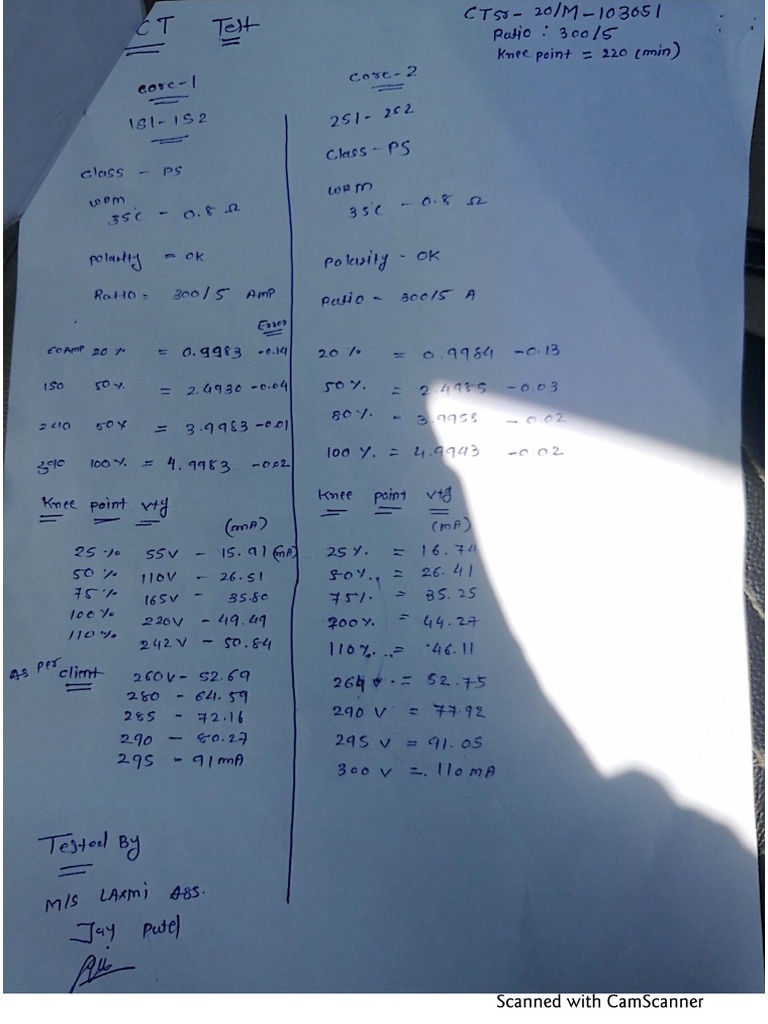 CT Test
CT Sr- 20/M-103051
Ratio : 300/5
Knee point = 220 (min)
core-1
1S1-1S2
class - PS
WRM
35°C - 0.8 Ω
polarity = OK
Ratio = 300/5 Amp
Error
60Amp 20% = 0.9983 -0.14
150 50% = 2.4930 -0.04
240 80% = 3.9983 -0.01
300 100% = 4.9983 -0.02
Knee point vtg
(mA)
25% 55V - 15.91 (mA)
50% 110V - 26.51
75% 165V - 35.80
100% 220V - 49.49
110% 242V - 50.84
As per client 260V - 52.69
280 - 64.59
285 - 72.16
290 - 80.27
295 - 91mA
Tested By
M/S LAXMI ABS.
Jay Patel
core-2
2S1-2S2
class-PS
WRM
35°C - 0.8 Ω
Polarity - OK
Ratio = 300/5 A
20% = 0.9984 -0.13
50% = 2.4985 -0.03
80% = 3.9958 -0.02
100% = 4.9943 -0.02
Knee point vtg
(mA)
25% = 16.74
50% = 26.41
75% = 35.25
100% = 44.27
110% = 46.11
264 V = 52.75
290 V = 77.92
295 V = 91.05
300 V = 110mA
Scanned with CamScanner